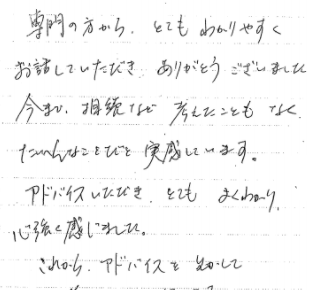 専門の方から、とても わかりやすく
お話していただき ありがとう ございました
今まで、相続など 考えたことも なく、
たいへんなことだと 実感しています。
アドバイスいただき、とても よくわかり、
心強く感じました。
これから、アドバイスを 生かして